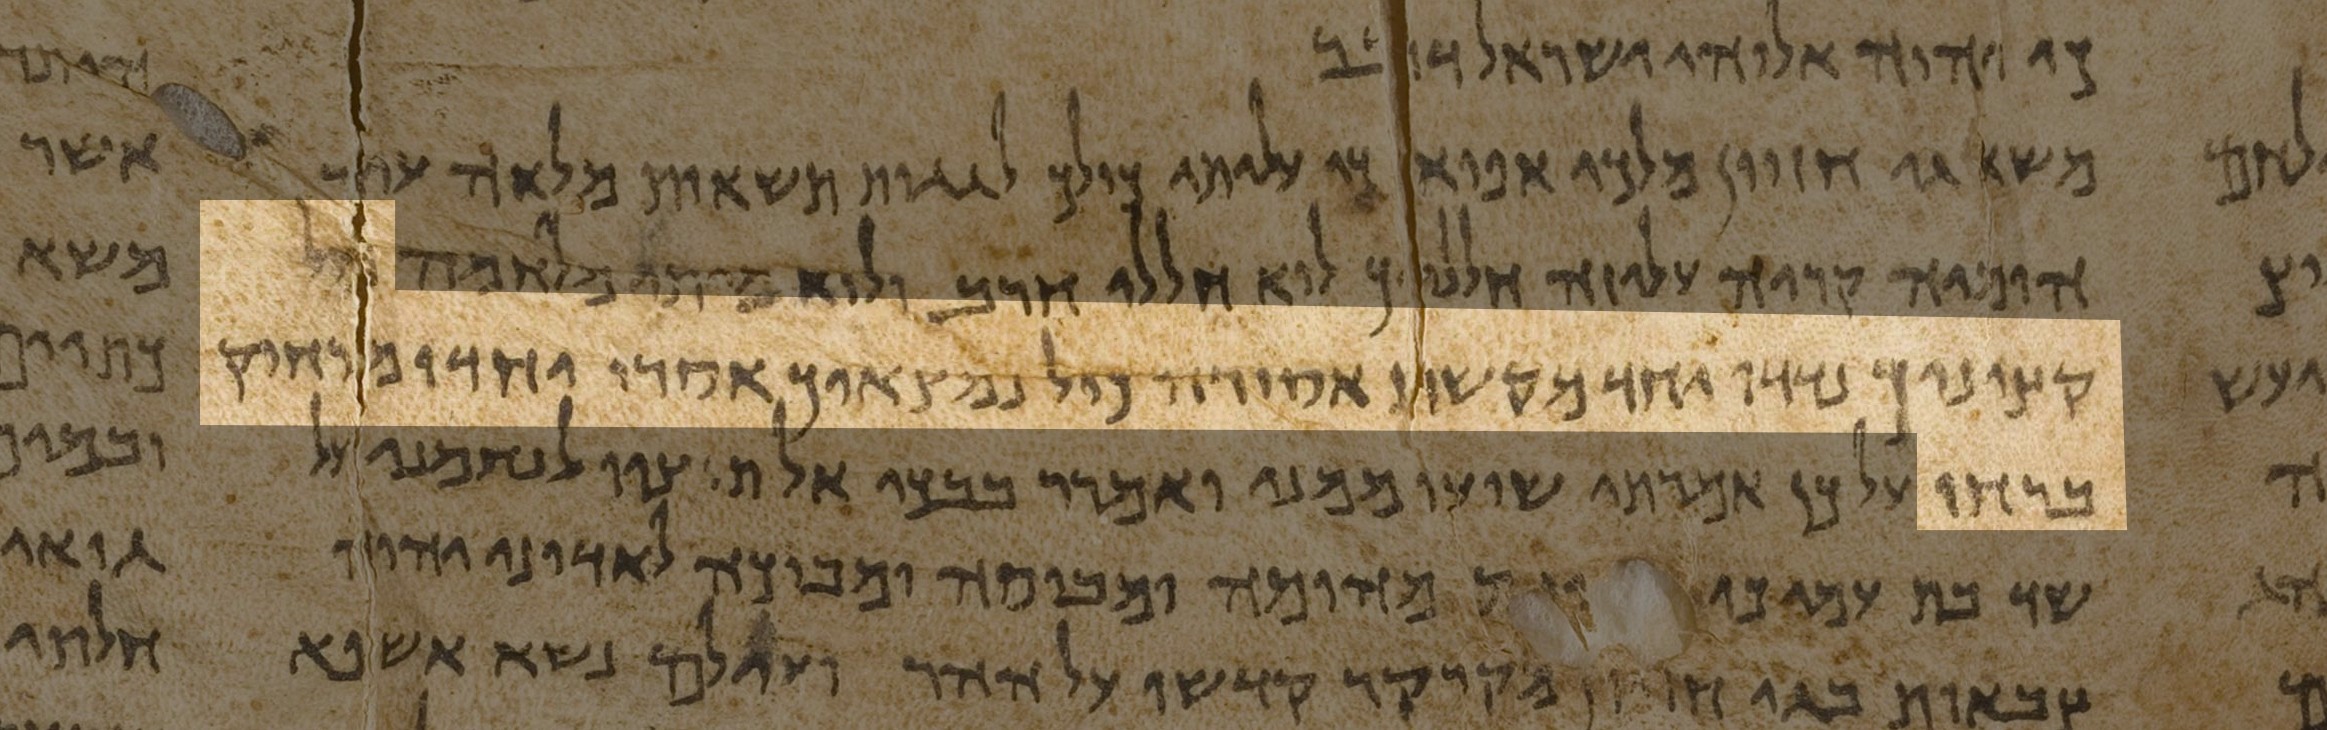 כי יהוה אלוהי ישראל דבר
משא גי חזיון מלכי אפוא כי עליתי כולך לגגות תשאות מלאה עיר
הומיה קריה עליזה חלליך לוא חללי חרב ולוא מיתי מלחמה כול
קציניך נדדו יחד מקשת אסורה כול נמצאיך אסרו יחדו מרחוק
ברחו על כן אמרתי שועו ממני ואמרר בבכי אל לנחמני על
שד בת עמי כי מהומה ומבוסה ומבוכה לאדוני יהוה
צבאות בגי מקרקר קדשו על ההר ועילם נשא אשפא
אשר
משא